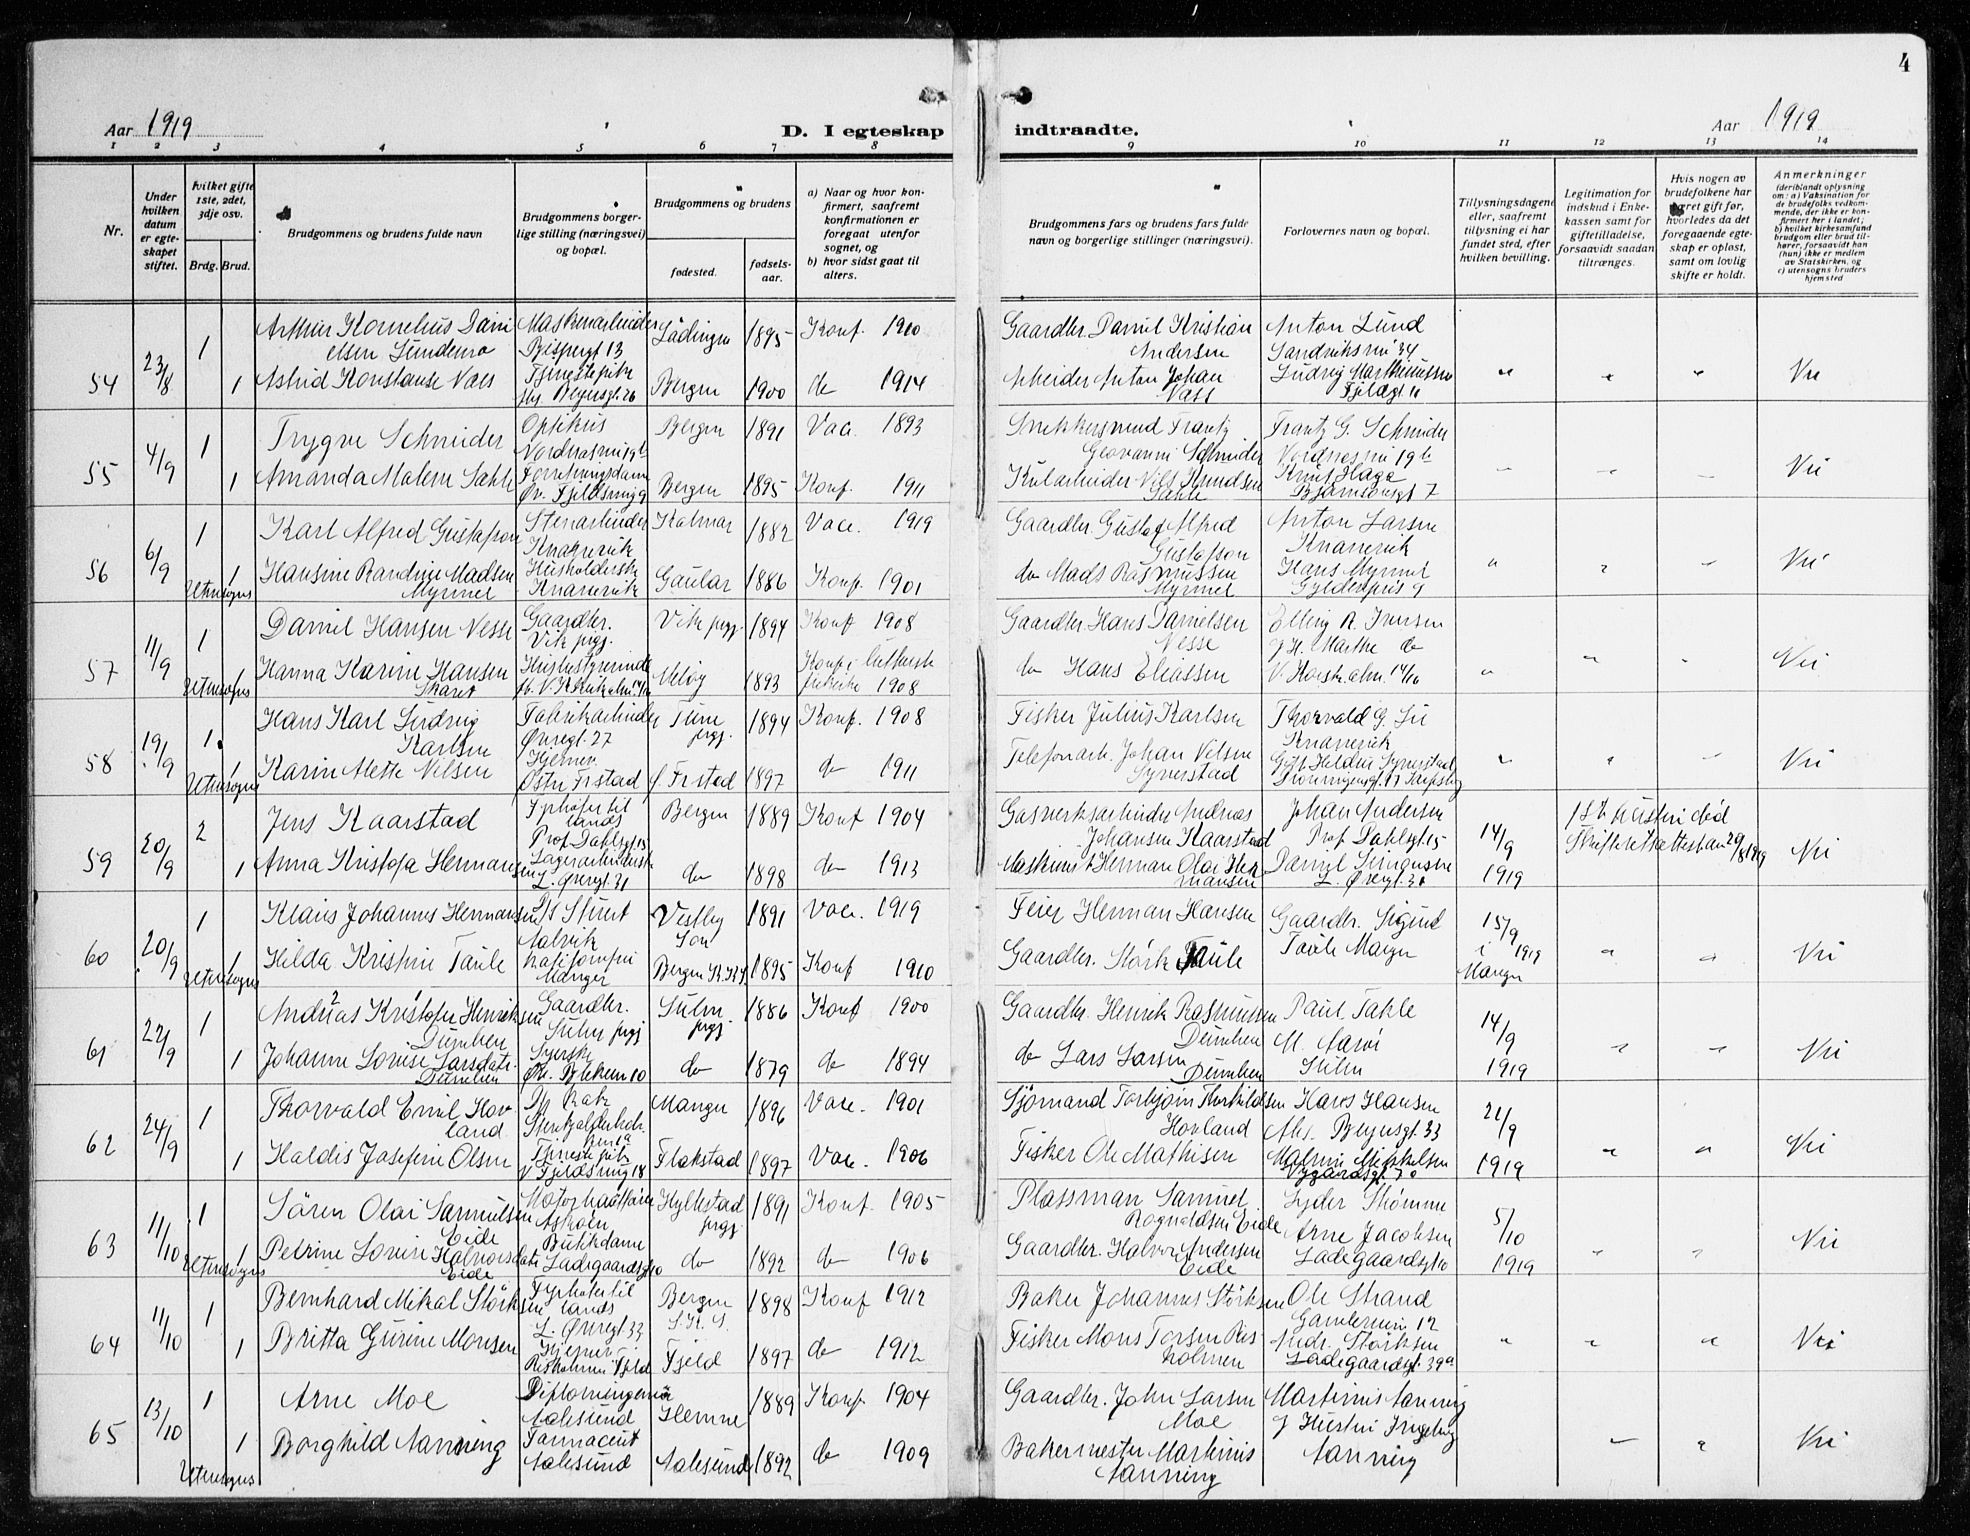 4
Aar 1919
D. I egteskap indtraadte.
Aar 1919
1 2 3 4 5 6 7 8 9 10 11 12 13 14
Nr.
Under hvilken datum er egteskapet stiftet.
hvilket gifte 1ste, 2det, 3dje osv.
Brdg. Brud.
Brudgommens og brudens fulde navn
Brudgommens borgerlige stilling (næringsvei) og bopæl.
Brudgommens og brudens
fødested.
fødselsaar.
a) Naar og hvor konfirmert, saafremt konfirmationen er foregaat utenfor sognet, og
b) hvor sidst gaat til alters.
Brudgommens fars og brudens fars fulde navn og borgerlige stillinger (næringsvei).
Forlovernes navn og bopæl.
Tillysningsdagene eller, saafremt tillysning ei har fundet sted, efter hvilken bevilling.
Legitimation for indskud i Enkekassen samt for giftetilladelse, forsaavidt saadan tiltrænges.
Hvis nogen av brudefolkene har været gift før, hvorledes da det foregaaende egteskap er opløst, samt om lovlig skifte er holdt.
Anmerkninger
(deriblandt oplysning om: a) Vaksination for de brudefolks vedkommende, der ikke er konfirmert her i landet; b) hvilket kirkesamfund brudgom eller brud tilhører, forsaavidt han (hun) ikke er medlem av Statskirken, og c) utensogns bruders hjemsted
54 23/8 1 Arthur Kornelius Danielsen Lundemo Bispengt 13 Lødingen 1895 Konf. 1910 Gaardbr. Daniel Kristian Andersen Anton Lund Sandviksvei 34
1 Astrid Konstanse Vaes Tjenestepike Bergen 1900 do 1914 Arbeider Anton Johan Vass Ludvig Martheinussen Fjeldgt 11 " " " Nei
55 4/9 1 Trygve Schneider Optikus Nordnesvei 19b Bergen 1891 Vacc. 1893 Frantz Geovanni Schneider Frantz G. Schneider Nordnesvei 19b
1 Amanda Malene Sakle Forretningsdame Øv. Fjeldsmug 9 Bergen 1895 Konf. 1911 Kularbeider Nils Knudsen Sakle Knut Hage Bjørnsonsgt 7 " " " Nei
56 6/9 1 Karl Alfred Gustafson Stenarbeider Knarrevik Kalmar 1882 Vacc. 1919 Gaardbr. Gustaf Alfred Gustafson Anton Larsen Knarrevik
Utensogns 1 Hansine Randine Madsen Myrmel Husholderske Knarrevik Gaular 1886 Konf. 1901 do Mads Rasmussen Myrmel Hans Myrmel Gyldenpris 9 " " " Nei
57 11/9 1 Daniel Hansen Nesse Gaardbr. Vik prgj. Vik prgj. 1894 Konf 1908 Gaardbr. Hans Danielsen Nesse Elling A. Iversen
Utensogns 1 Hanna Karine Hansen Skaret Husbestyrerinde Meløy 1893 Konf i luthersk frikirke 1908 do Hans Eliassen g. H. Marthe do " " " Nei
58 19/9 1 Hans Karl Ludvig Karlsen Fabrikarbeider Øvregt. 27 Tune prgj. 1894 Konf. 1908 Fisker Julius Karlsen Thorvald G. Lie Knarrevik
Utensogns 1 Karin Alette Nilsen Hjemmev. Østre Frstad f. Frstad 1897 do 1911 Telefonarb. Johan Nilsen Synerstad " " " Nei
59 20/9 2 Jens Kaarstad Fyrbøter til lands Prof. Dahlsgt 15 Bergen 1889 Konf 1904 Gasverksarbeider Andreas Johansen Kaarstad Johan Andersen Prof Dahlsgt 15 14/9 1919 1ste hustru død Skifteretsattest av 20/8 1919
1 Anna Kristofa Hermansen Lagerarbeiderske L. Øvregt. 31 do 1898 do 1913 Maskinist Herman Olai Hermansen Daniel Simonsen L. Øvregt. 31 Nei
60 20/9 1 Klaus Johannes Hermansen D/s Stuert Narvik Vestby Son 1891 Vacc. 1919 Feier Herman Hansen Gaardbr. Sigurd Taule Manger 15/9 1919 i Manger
Utensogns 1 Hilda Kristine Taule Manger Bergen 1895 Konf 1910 Gaardbr. Størk Taule " " Nei
61 22/9 1 Andreas Kristofer Henriksen Dumben Gaardbr. Sulen prgj Sulen prgj. 1886 Konf 1900 Gaardbr. Henrik Rasmussen Dumben Paul Takle 14/9 1919
1 Johanne Lovise Larsdatr. Dumben Syerske Øv. Blekevei 10 do 1879 do 1894 do Lars Larsen Dumben Sulen " " Nei
62 24/9 1 Thorvald Emil Hovland Manger 1896 Vacc. 1901 Sjømand Torbjørn Thorkildsen Hovland Hans Hansen 33 21/9 1919
1 Haldis Josefine Olsen Tjenestepike N. Fjeldsmug 18 Flakstad 1897 Vacc. 1906 Fisker Ole Mathisen " " Nei
63 11/10 1 Søren Olai Samuelsen Eide Askøen Hyllestad prgj. 1891 Konf. 1905 Plassman Samuel Rognaldsen Eide Lyder Strømme 5/10 1919
Utensogns 1 Petrine Lovise Halvorsdatr Eide Butikdame Ladegaardsgt 10 do 1892 do 1906 Gaardbr. Halvor Andersen Eide Arne Jacobsen Ladegaardsgt 10 " " Nei
64 11/10 1 Bernhard Mikal Størksen Fyrbøter til lands L. Øvregt 33 Bergen S.K.S. 1898 Konf 1912 Baker Johannes Størksen Ole Strand Gamlevei 12
1 Britta Gurine Monsen Hjemmev. Risholmen Fjeld Fjeld 1897 do 1912 Fisker Mons Torsen Risholmen Størksen Ladegaardsgt. 39a " " " Nei
65 13/10 1 Arne Moe Diplomingeniør Aalesund Hemne 1889 Konf. 1904 Gaardbr. John Larsen Moe Martinus Nanning g Hustru Ingeborg Nanning
Utensogns 1 Borghild Nanning Farmaceut Aalesund Aalesund 1892 do 1909 Bakermester Martinus Nanning " " Nei